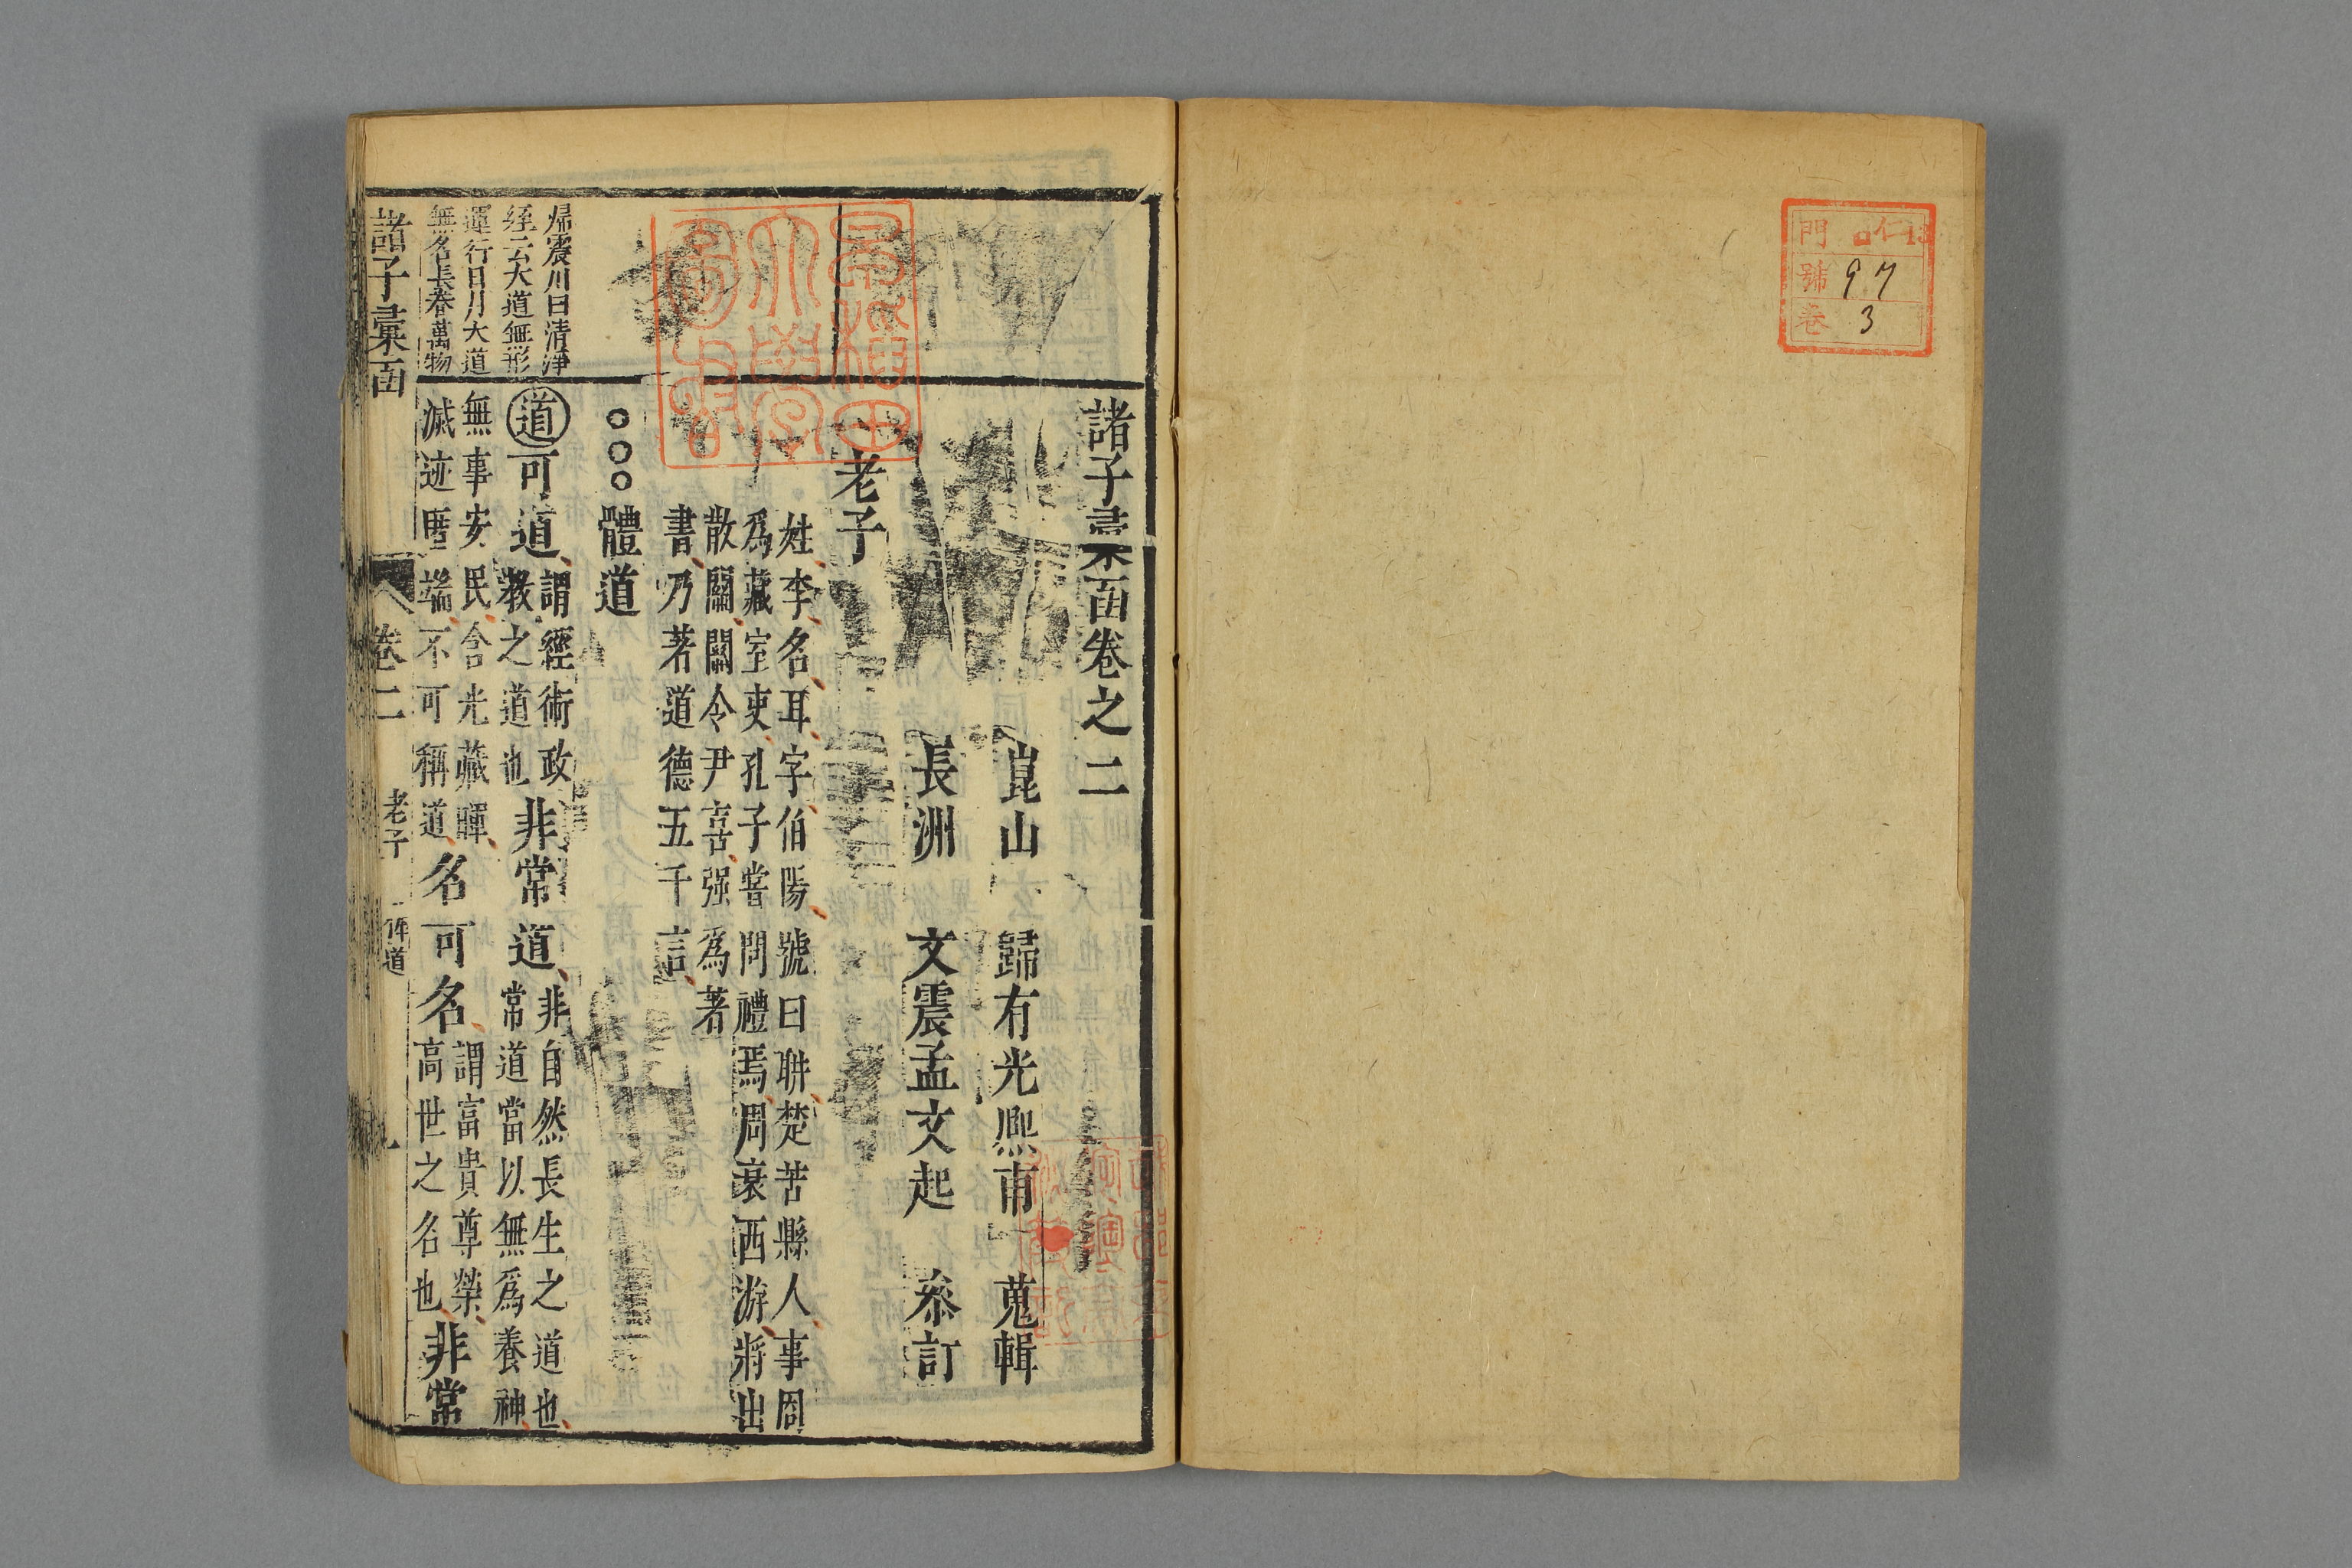 門 仁 13
號 97
卷 3
諸子彙函卷之二
崑山 歸有光熈甫 蒐輯
長洲 文震孟文起 叅訂
老子
姓李名耳字伯陽號曰聃楚苦縣人事周
爲藏室吏孔子嘗問禮焉周衰西游將出
散關關令尹喜强爲著
書乃著道德五千言
○○○體道
歸震川曰清淨
經云大道無形
運行日月大道
無名長養萬物
道可道
謂經術政
教之道也
非常道
非自然長生之道也
常道當以無爲養神
無事安民含光藏暉
滅迹匿端不可稱道
名可名
謂富貴尊榮
高世之名也
非常
諸子彙函 卷二 老子 體道
早稻田大學圖書